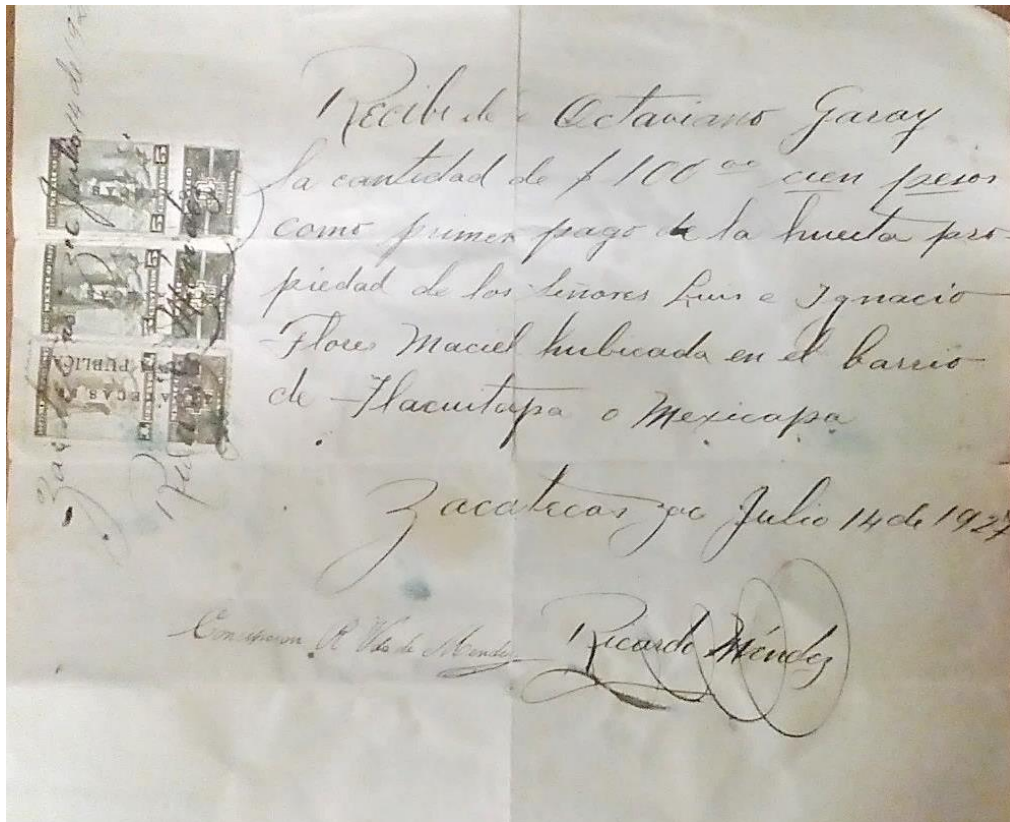 Recibi de Octaviano Garay
la cantidad de $100 oo cien pesos
como primer pago de la huerta pro-
piedad de los Señores Luis e Ignacio
Flores Maciel hubicada en el barrio
de Tlacuitapa o Mexicapa
Zacatecas Zac Julio 14 de 1927
Concepcion R. Vda de Mendez Ricardo Méndez